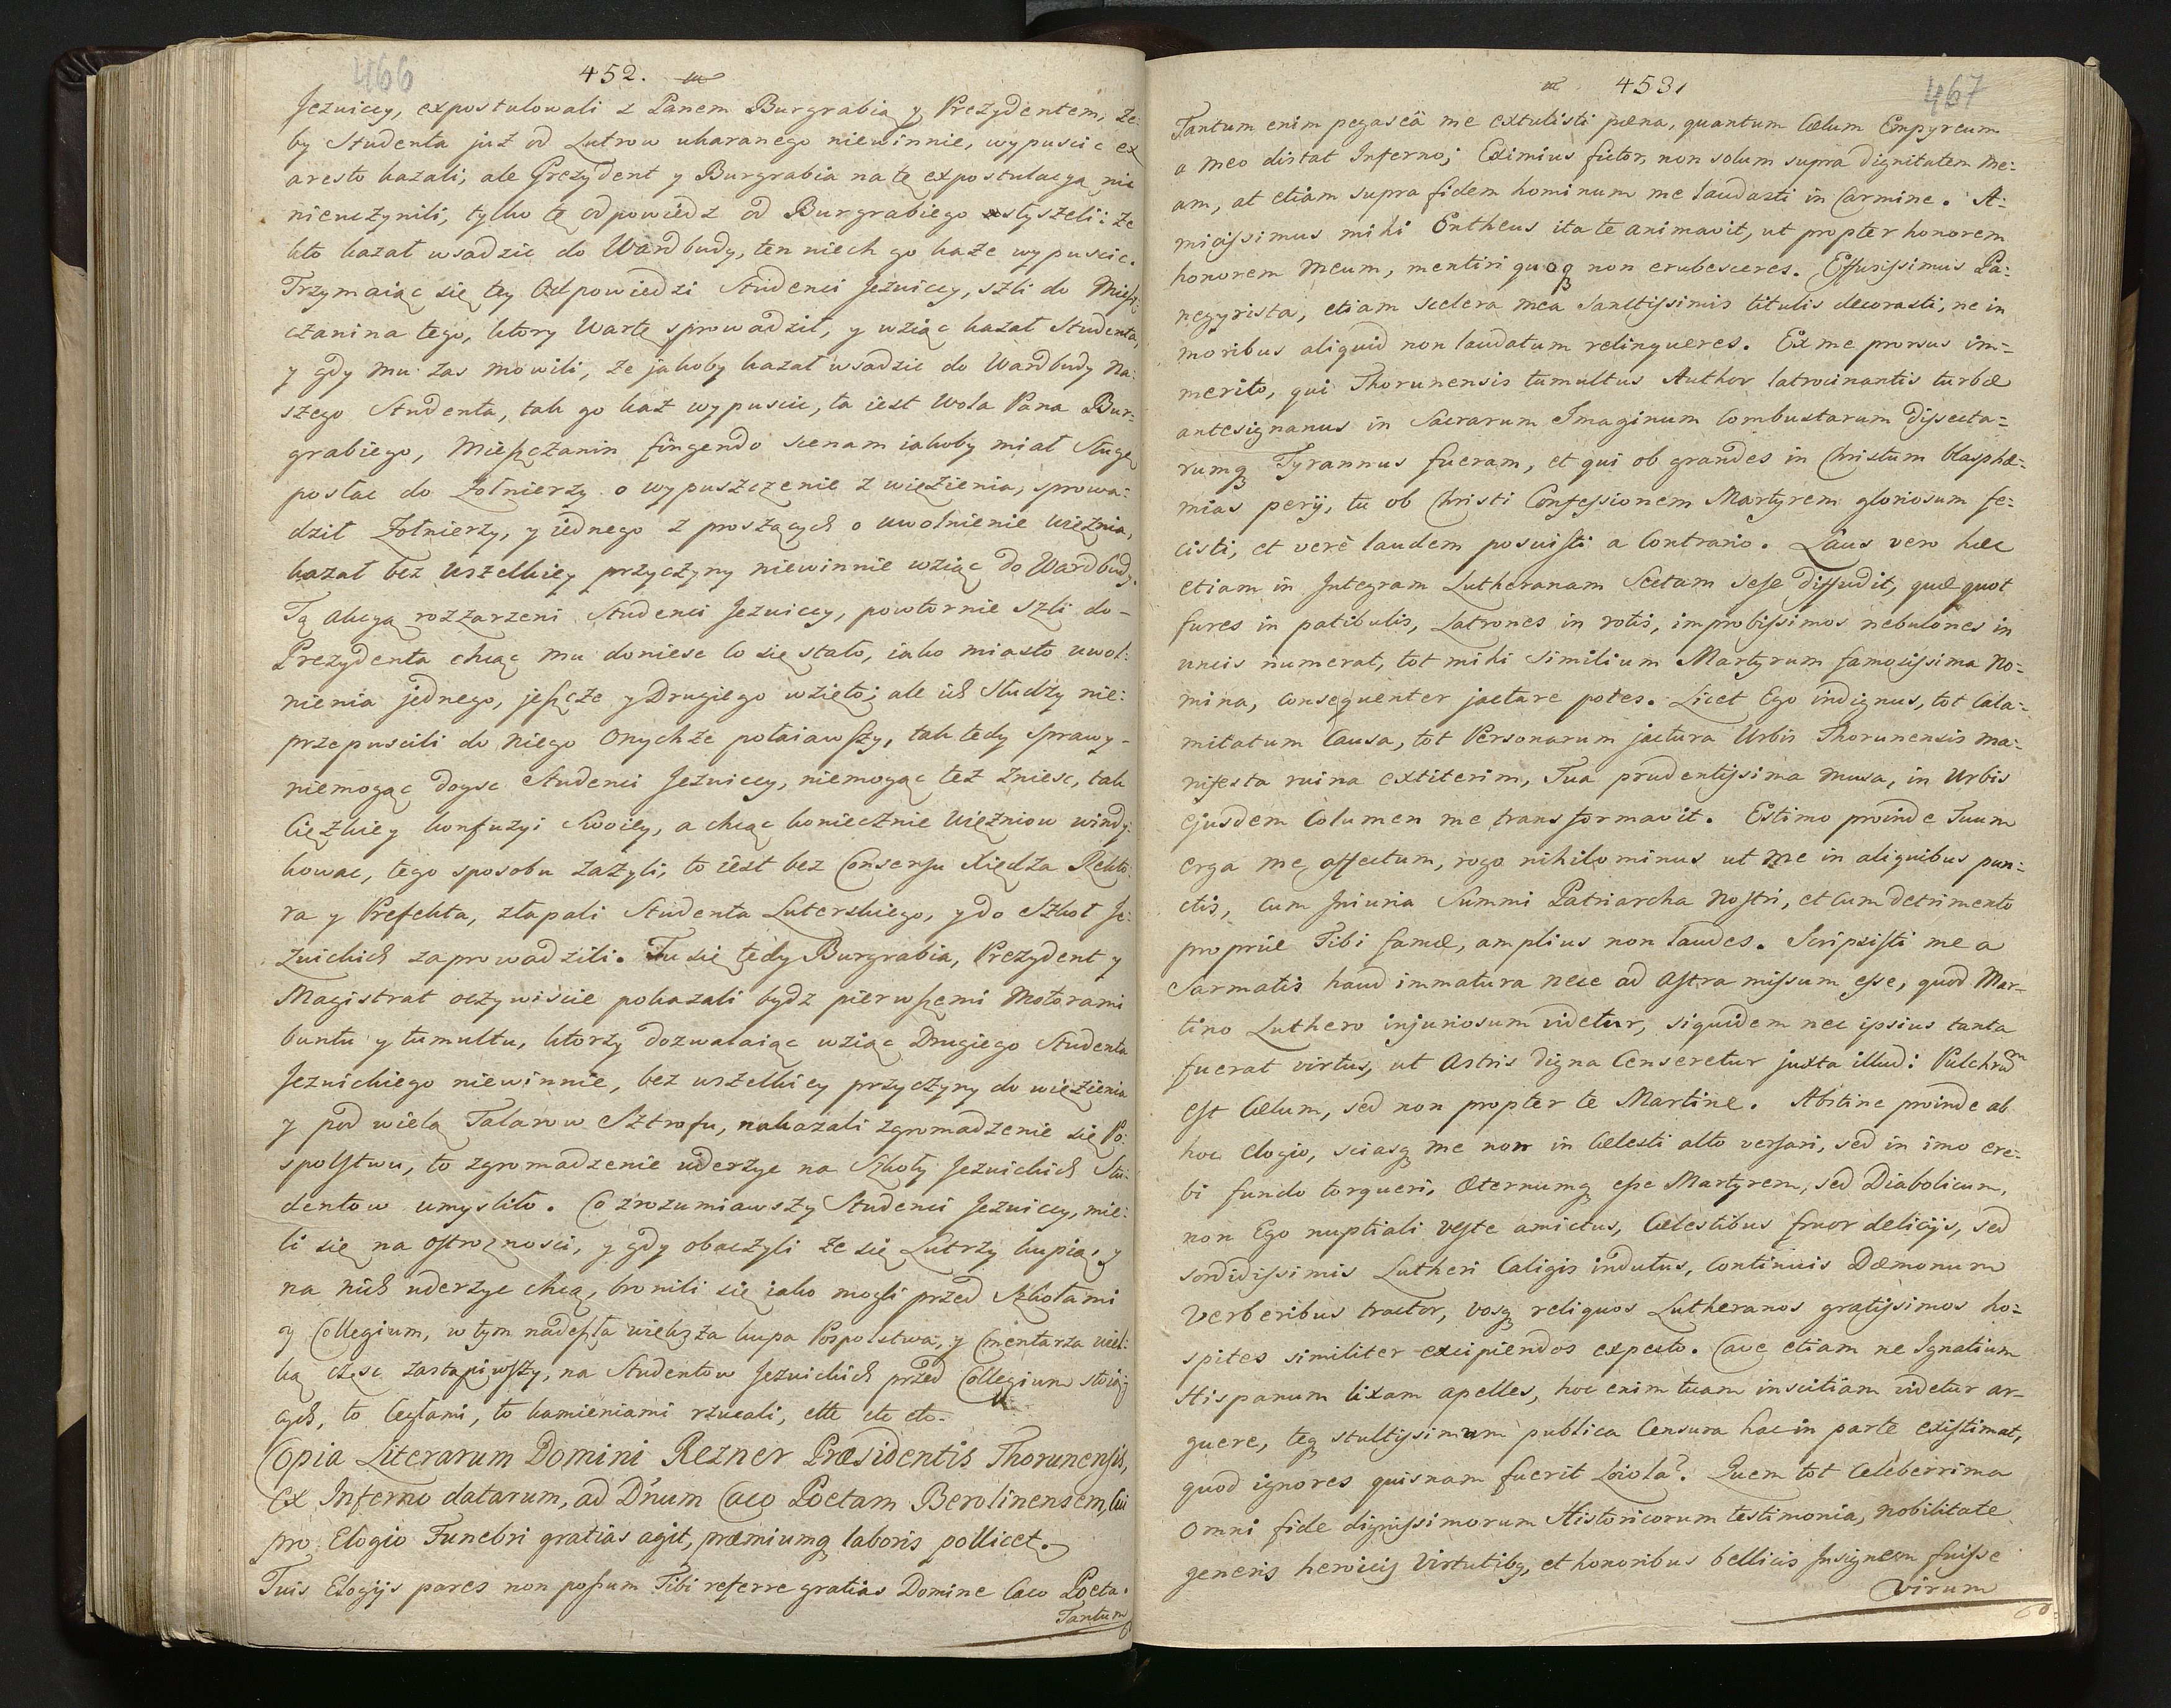 466
452.
Jezuiccy, expostulowali z Panem Burgrabią y Prezydentem, że:
by Studenta już od Lutrow ukaranego niewinnie, wypuscic ex
aresto kazali; ale Prezydent y Burgrabia na tę expostulacyą nic
nieuczynili, tylko tę odpowiedz od Burgrabiego słyszeli: że
kto kazał wsadzic do Wardbudy, ten niech go każe wypuscic.
Trzymaiąc się tey Odpowiedzi Studenci Jezuiccy, szli do Mieszt:
czanina tego, ktory Wartę sprowadził, y wziąc kazał Studenta,
y gdy mu zas mowili, że jakoby kazał wsadzic do Wardbudy na:
szego Studenta, tak go każ wypuscic, ta iest Wola Pana Bur:
grabiego, Mieszczanin fingendo scenam iakoby miał Sługę
posłac do Żołnierzy o wypuszczenie z więzienia, sprowa:
dził Żołnierzy, y iednego z proszących o uwolnienie więznia,
kazał bez wszelkiey przyczyny niewinnie wziąc do Wardbudy.
Tą akcyą rozżarzeni Studenci Jezuiccy, powtornie szli do-
Prezydenta chcąc mu doniesc co się stało, iako miasto uwol:
nienia jednego, jeszcze y Drugiego wzięto; ale ich Słudzy nie:
przepuscili do niego Onychże połaiawszy, tak tedy sprawy-
niemogąc doysc Studenci Jezuiccy, niemogąc też zniesc, tak
Cięzkiey konfuzyi Swoiey, a chcąc koniecznie Więzniow windy:
kowac, tego sposobu zażyli, to iest bez Consensu Xiędza Rekto:
ra y Prefekta, złapali Studenta Luterskiego, y do Szkoł Je:
zuickich zaprowadzili. Tu się tedy Burgrabia, Prezydent y
Magistrat oczywiscie pokazali bydz pierwszemi Motorami
buntu y tumultu, ktorzy dozwalaiąc wziąc Drugiego Studenta
Jezuickiego niewinnie, bez wszelkiey przyczyny do więzienia
y pod wielą Talarow Sztrofu, nakazali zgromadzenie się Po:
spolstwu, to zgromadzenie uderzyc na Szkoły Jezuickich Stu:
dentow umysliło. Co zrozumiawszy Studenci Jezuiccy, mie:
li się na ostroznosci, y gdy obaczyli że się Lutrzy kupią, y
na nich uderzyc chcą, bronili się iako mogli przed Szkołami
y Collegium, w tym nadeszła większa kupa Pospolstwa, y Cmentarza wiel:
ką częsc zastąpiwszy, na Studentow Jezuickich przed Collegium stoią:
cych, to Cegłami, to kamieniami rzucali, ett etc etc-
Copia Literarum Domini Rezner Præsidentis Thorunensis,
Ex Inferno datarum, ad D'num Caco Poetam Berolinensem, cui
pro Elogio Funebri gratias agit, præmiumq laboris pollicet.
Tuis Elogijs pares non possum Tibi referre gratias Domine Caco Poeta.
Tantum
453.
467
Tantum enim pegaseâ me extulisti pæna, quantum Cælum Empyreum
a meo distat Inferno; Eximius fictor, non solum supra dignitatem me:
am, at etiam supra fidem hominum me laudasti in Carmine. A:
micissimus mihi Entheus ita te animavit, ut propter honorem
honorem meum, mentiri quoq non erubesceres. Effusissimus Pa:
negyrista, etiam scelera mea Sanctissimis titulis decorasti, ne in
moribus aliquid non laudatum relinqueres. Ex me prorsus im=
merito, qui Thorunensis tumultus Author latrocinantis turbæ
antesignanus in Sacrarum Imaginum Combustarum Dissecta=
rumq Tyrannus fueram, et qui ob grandes in Christum blasphæ:
mias perij, tu ob Christi Confessionem Martyrem gloriosum fe:
cisti, et verè laudem posuisti a Contrario. Laus vero hæc
etiam in Integram Lutheranam Sectam sese diffudit, quæ quot
fures in patibulis, Latrones in rotis, improbissimos nebulones in
uncis numerat, tot mihi similium Martyrum famosissima no:
mina, consequenter jactare potes. Licet Ego indignus, tot Cala:
mitatum Causa, tot Personarum jactura Urbis Thorunensis ma:
nifesta ruina extiterim, Tua prudentissima musa, in Urbis
ejusdem Columen me transformavit. Estimo proinde Tuum
erga me affectum, rogo nihilominus ut me in aliquibus pun:
ctis, cum Iniuria Summi Patriarcha Nostri, et cum detrimento
propriæ Tibi famæ, amplius non laudes. Scripsisti me a
Sarmatis haud immatura nece ad Astra missum esse, quod Mar-
tino Luthero injuriosum videtur, siquidem nec ipsius tanta
fuerat virtus, ut Astris digna Censeretur juxta illud: Pulchrum
est Cælum, sed non propter te Martine. Abstine proinde ab
hoc elogio, sciasq me non in Cælesti alto versari, sed in imo ere:
bi fundo torqueri, Æternumq esse Martyrem, sed Diabolicum,
non Ego nuptiali veste amictus, Cælestibus fruor delicijs, sed
sordidissimis Lutheri Caligis indutus, continuis Dæmonum
verberibus tractor, vosq reliquos Lutheranos gratissimos ho:
spites similiter excipiendos expecto. Cave etiam ne Ignatium
Hispanum lixam apelles, hoc enim tuam inscitiam videtur ar-
guere, teq stultissimum publica Censura hac in parte existimat,
quod ignores quisnam fuerit Loiola? Quem tot Celeberrima
omni fide dignissimorum Historicorum testimonia, nobilitate
generis heroicis Virtutibq, et honoribus bellicis Insignem fuisse
virum